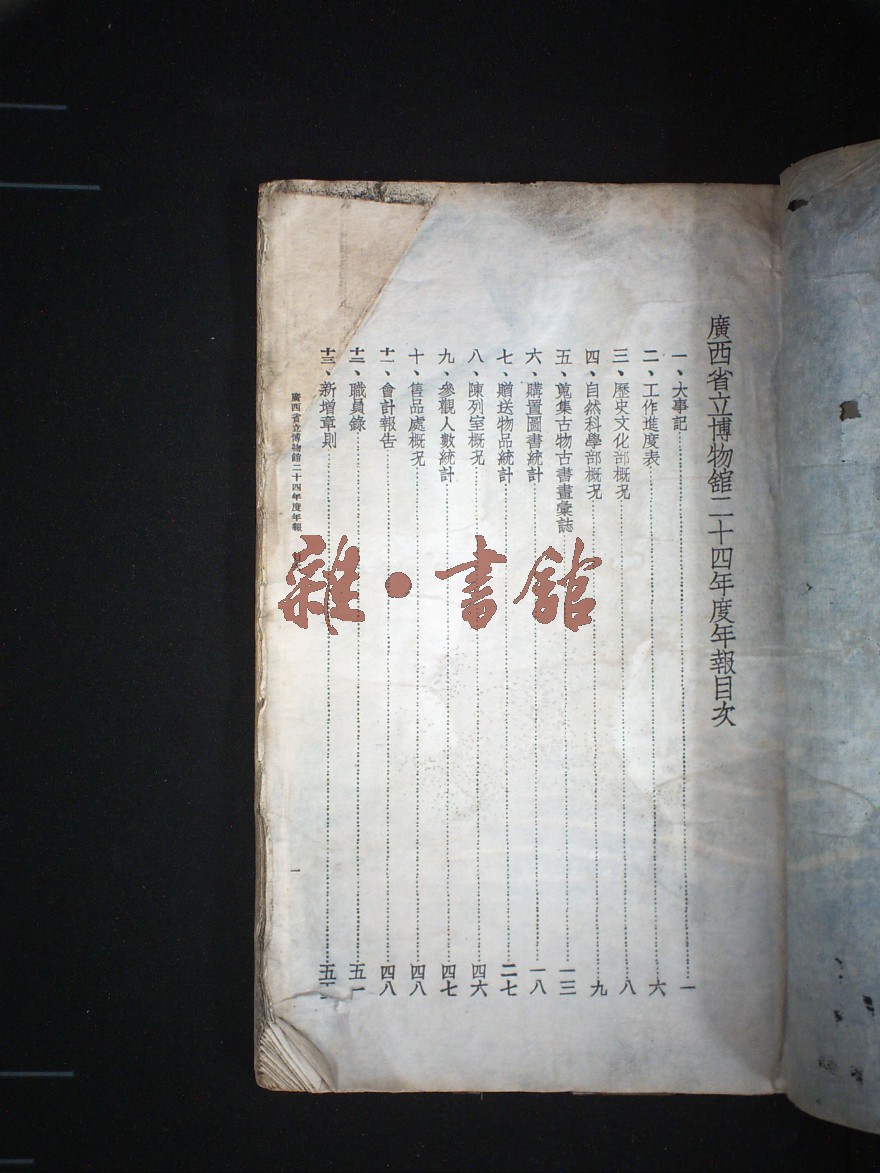 廣西省立博物館二十四年度年報目次
一、大事記……一
二、工作進度表……六
三、歷史文化部概況……八
四、自然科學部概況……九
五、蒐集古物古書畫彙誌……一三
六、購置圖書統計……一八
七、贈送物品統計……二七
八、陳列室概況……四六
九、參觀人數統計……四七
十、售品處概況……四八
十一、會計報告……四八
十二、職員錄……五一
十三、新增章則……五
廣西省立博物館二十四年度年報
一
雜·書館